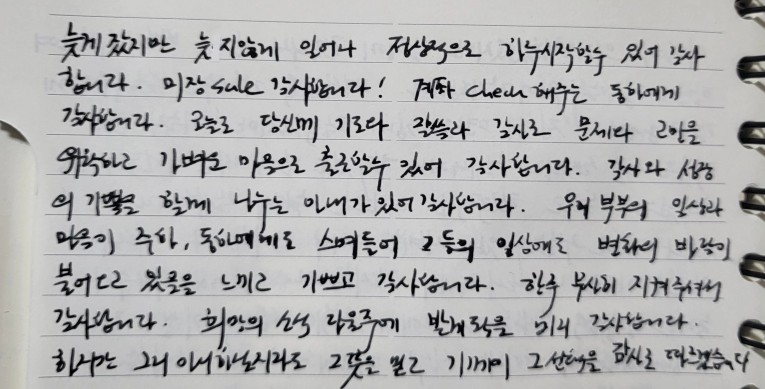 늦게 잤지만 늦지않게 일어나 정상적으로 하루시작할수 있어 감사
합니다. 미장 sale 감사합니다! 계좌 check 해주는 동하에게
감사합니다. 오늘도 당신께 기도와 말씀과 감사로 문제와 고민을
위탁하고 가벼운 마음으로 출근할수 있어 감사합니다. 감사와 성장
의 기쁨을 함께 나누는 아내가 있어 감사합니다. 우리 부부의 일상과
믿음이 주하, 동하에게도 스며들어 그들의 일상에도 변화의 바람이
불어오고 있음을 느끼고 기쁘고 감사합니다. 한주 무사히 지켜주셔서
감사합니다. 희망의 소식 다음주에 발개 미리 감사합니다.
하지만 그리 아니하실지라도 그 뜻을 믿고 기꺼이 그 선택을 따르겠습니다